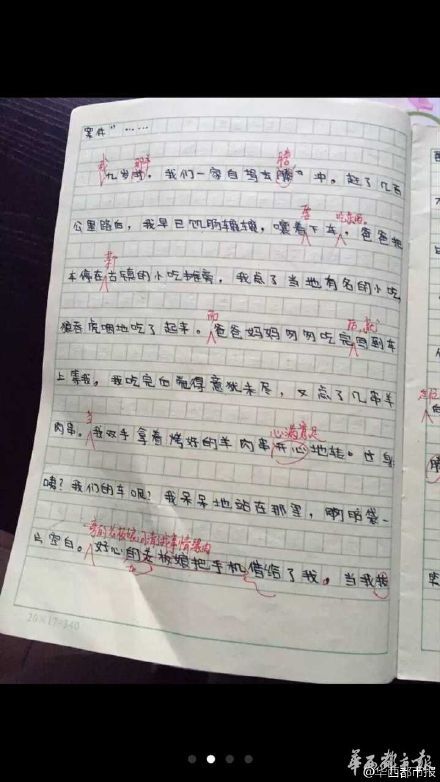 案件"……
我 那年 腾
几岁时。我们一家自驾去腾冲。赶了几百
要 吃东西。
公里路后，我早已饥肠辘辘，嚷着下车。爸爸把
车停在古镇的小吃摊旁，我点了当地有名的小吃
狼吞虎咽地吃了起来。爸爸妈妈匆匆吃完回到车
而 后，就
上等我。我吃完后觉得意犹未尽，又点了几串羊
心满意足
肉串。我双手拿着烤好的羊肉串开心地转过身
咦？我们的车呢？我呆呆地站在那里，脑袋一
片空白。好心的老板娘把手机借给了我。当我
20×17=340
华西都市报
@华西都市报